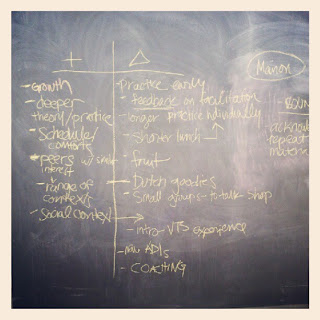 +
- Growth
- deeper
theory/practice
- schedule/
comforts
- peers w/ similar
interest
- range of
contexts
- social context
△
Practice early
- feedback on facilitation
- longer practice individually
- shorter lunch
- fruit
- Dutch goodies
- small groups - to - talk - shop
- intro - VTS experience
- ADIs
- COACHING
Manon
- BOUN